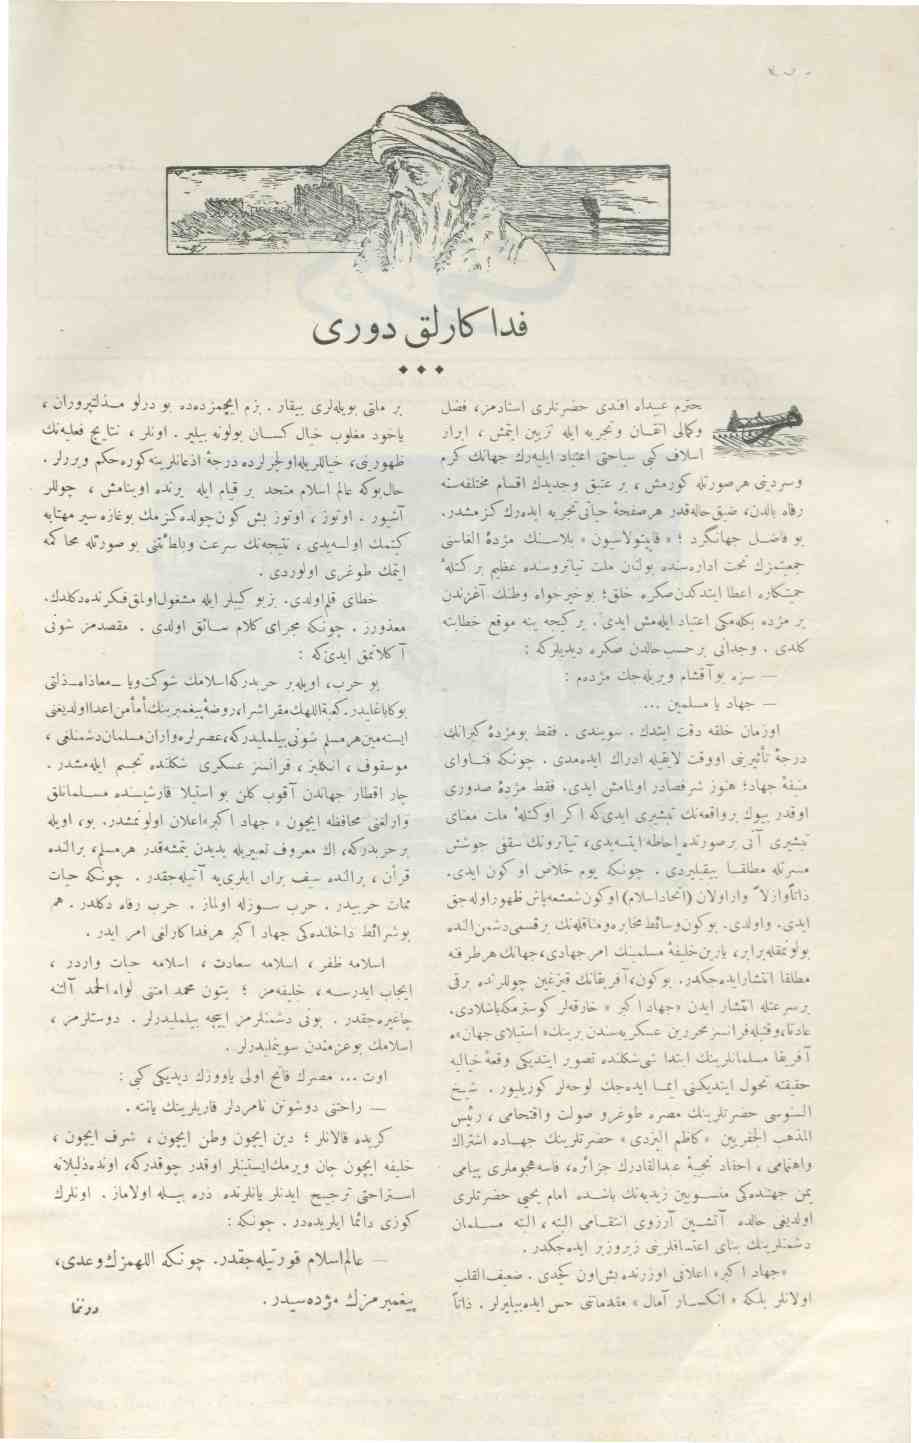 فداكارلق دورى
محترم عبيدالله افندى حضرتلرى استادمز، فضل
وكمالى اتقان وتجربه ايله تزيين ايتمش ، ابرار
اسلاف كبى سياحتى اعتياد ايليه‌رك جهانك كرم
وسردينى هرصورتله كورمش ، بر عتيق وجديدك اقسام مختلفه‌سنه
رفاه بالدن، ضيق‌حاله‌قدر هرصفحۀ حياتى تجربه ايده‌رك كزمشدر.
بو فاضل جهانكرد ؛ « قاپيتولاسيون » بلاسنك مژدۀ الغاسنى
جمعيتمزك تحت اداره‌سنده بولنان ملت تياتروسنده عظيم بر كتلۀ
حميتكاره اعطا ايتدكدن‌صكره خلق؛ بوخيرخواه وطنك آغزندن
بر مژده بكله‌مكى اعتياد ايله‌مش ايدى. بركيجه ينه موقع خطابته
كلدى . وجدانى برحسب‌حالدن صكره ديديلركه :
— سزه بوآقشام ويريله‌جك مژده‌م :
— جهاد يا مسلمين ...
اوزمان خلقه دقت ايتدك . سويندى . فقط بومژدۀ كبرانك
درجۀ تأثيرينى اووقت لايقيله ادراك ايده‌مدى . چونكه فتاواى
منيفۀ جهاد؛ هنوز شرفصادر اولمامش ايدى. فقط مژدۀ صدورى
اوقدر بيوك برواقعه‌نك تبشيرى ايدى‌كه اكر اوكتلۀ ملت معناى
تبشيرى آنى برصورتده احاطه ايتسه‌يدى، تياترونك سقفى جوشش
مسرتله مطلقا ييقيليردى . چونكه يوم خلاص او كون ايدى.
ذاتاًوازلاً واراولان (اتحاداسلام) اوكون‌شعشعه‌پاش ظهوراوله‌جق
ايدى. واولدى. بوكون‌وسائط مخابره‌ومناقله‌نك برقسمى‌دشمن‌النده
بولونمقله‌برابر، يارين‌خليفۀ مسلمينك امرجهادى،جهانك هرطرفنه
مطلقا انتشارايده‌جكدر. بوكون،آفريقانك قيزغين چوللرنده برقى
برسرعتله انتشار ايدن «جهاد اكبر » خارقه‌لر كوسترمكه‌باشلادى.
عادتا،وقتيله‌فرانسز محررين عسكريه‌سندن برينك« استيلاى جهان»ه
آفريقا مسلمانلرينك ابتدا شكلنده تصوير ايتديكى وقعۀ خياليه
حقيقته تحول ايتديكنى ايما ايده‌جك لوحه‌لر كوزيليور. شيخ
السنوسى حضرتلرينك مصره طوغرو صولت واقتحامى ، رئيس
المذهب الجعفريين «كاظم اليزدى» حضرتلرينك جهاده اشتراك
واهتمامى ، احفاد نجيبۀ عبدالقادرك جزائره، فاسه‌هجوملرى پيامى
يمن جهتنده‌كى منسوبين زيديه‌نك باشنده امام يحيى حضرتلرى
اولديغى حالده آتشين آرزوى انتقامى البته ، البته مسلمان
دشمنلرينك بناى اعتسافلرينى زيروزبر ايده‌جكدر.
«جهاد اكبر» اعلانى اوزرنده بش‌اون كچدى. ضعيف‌القلب
اولانلر بلكه « انكسار آمال » مقدماتنى حس ايده‌بيليرلر . ذاتاً
بر ملتى بويله‌لرى ييقار . بزم ايچمزده‌ده بو درلو مذلتپروران ،
ياخود مغلوب خيال كسان بولونه بيلير. اونلر ، نتايج فعليه‌نك
ظهورينى، خياللريله‌اولچرلرده درجۀ اذعانلرينه‌كوره‌حكم ويررلر.
حال‌بوكه عالم اسلام متحد بر قيام ايله يرنده اوينامش ، چوللر
آشيور . اوتوز ، اوتوز بش كون‌چولده‌كزمك بوغازه سير مهتابه
كيتمك اولسه‌يدى ، نتيجه‌نك سرعت وبطائتنى بو صورتله محاكمه
ايتمك طوغرى اولوردى .
خطاى قلم‌اولدى. بزبوكيبلر ايله مشغول‌اولمق‌فكرنده‌دكلدك.
معذورز . چونكه مجراى كلام سائق اولدى . مقصدمز شونى
آكلاتمق ايدى‌كه :
بو حرب، اويله‌بر حربدركه‌اسلامك شوكت‌ويا ـ‌معاذالله‌ـ ذلتى
بوكاباغليدر.كعبة‌اللهك‌مقراشراء،روضۀ‌پيغمبرينك‌مأمن‌اعدااولديغنى
ايسته‌مين‌هرمسلم شونى‌بيلمليدركه،عصرلردن‌واران‌مسلمان‌دشمنلغى ،
موسقوف ، انكليز ، فرانسز عسكرى شكلنده تجسم ايله‌مشدر .
چار اقطار جهاندن آقوب كلن بو استيلا قارشيسنده مسلمانلق
وارلغنى محافظه ايچون « جهاد اكبر»اعلان اولونمشدر. بو، اويله
برحربدركه، اك معروف تعبيريله يديدن يتمشه‌قدر هرمسلم، برالنده
قرآن ، برالنده سيف بران ايلرى‌يه آتيله‌جقدر. چونكه حيات
ممات حربيدر. حرب سوزله اولماز. حرب رفاه دكلدر. هم
بوشرائط داخلنده‌كى جهاد اكبر هرفداكارلغى امر ايدر .
اسلامه ظفر ، اسلامه سعادت ، اسلامه حيات واردر ،
ايجاب ايدرسه ، خليفه‌مز ؛ بتون محمد امتنى لواءالحمد آلتنه
چاغيره‌جقدر. بونى دشمنلرمز اييجه بيلمليدرلر. دوستلرمز ،
اسلامك بوعزمندن سوينمليدرلر.
اوت ... مصرك فاتح اولى ياووزك ديديكى كبى :
— راحتى دوشونن نامردلر قاريلرينك يانته .
كريده قالانلر ؛ دين ايچون وطن ايچون ، شرف ايچون ،
خليفه ايچون جان ويرمك‌ايستينلر اوقدر چوقدركه، اونده‌ذليلانه
استراحتى ترجيح ايدنلر يانلرنده ذره بيله اولاماز . اونلرك
كوزى دائما ايلريده‌در. چونكه :
— عالم‌اسلام قورتيله‌جقدر. چونكه اللهمزك‌وعدى،
پيغمبرمزك مژده‌سيدر.